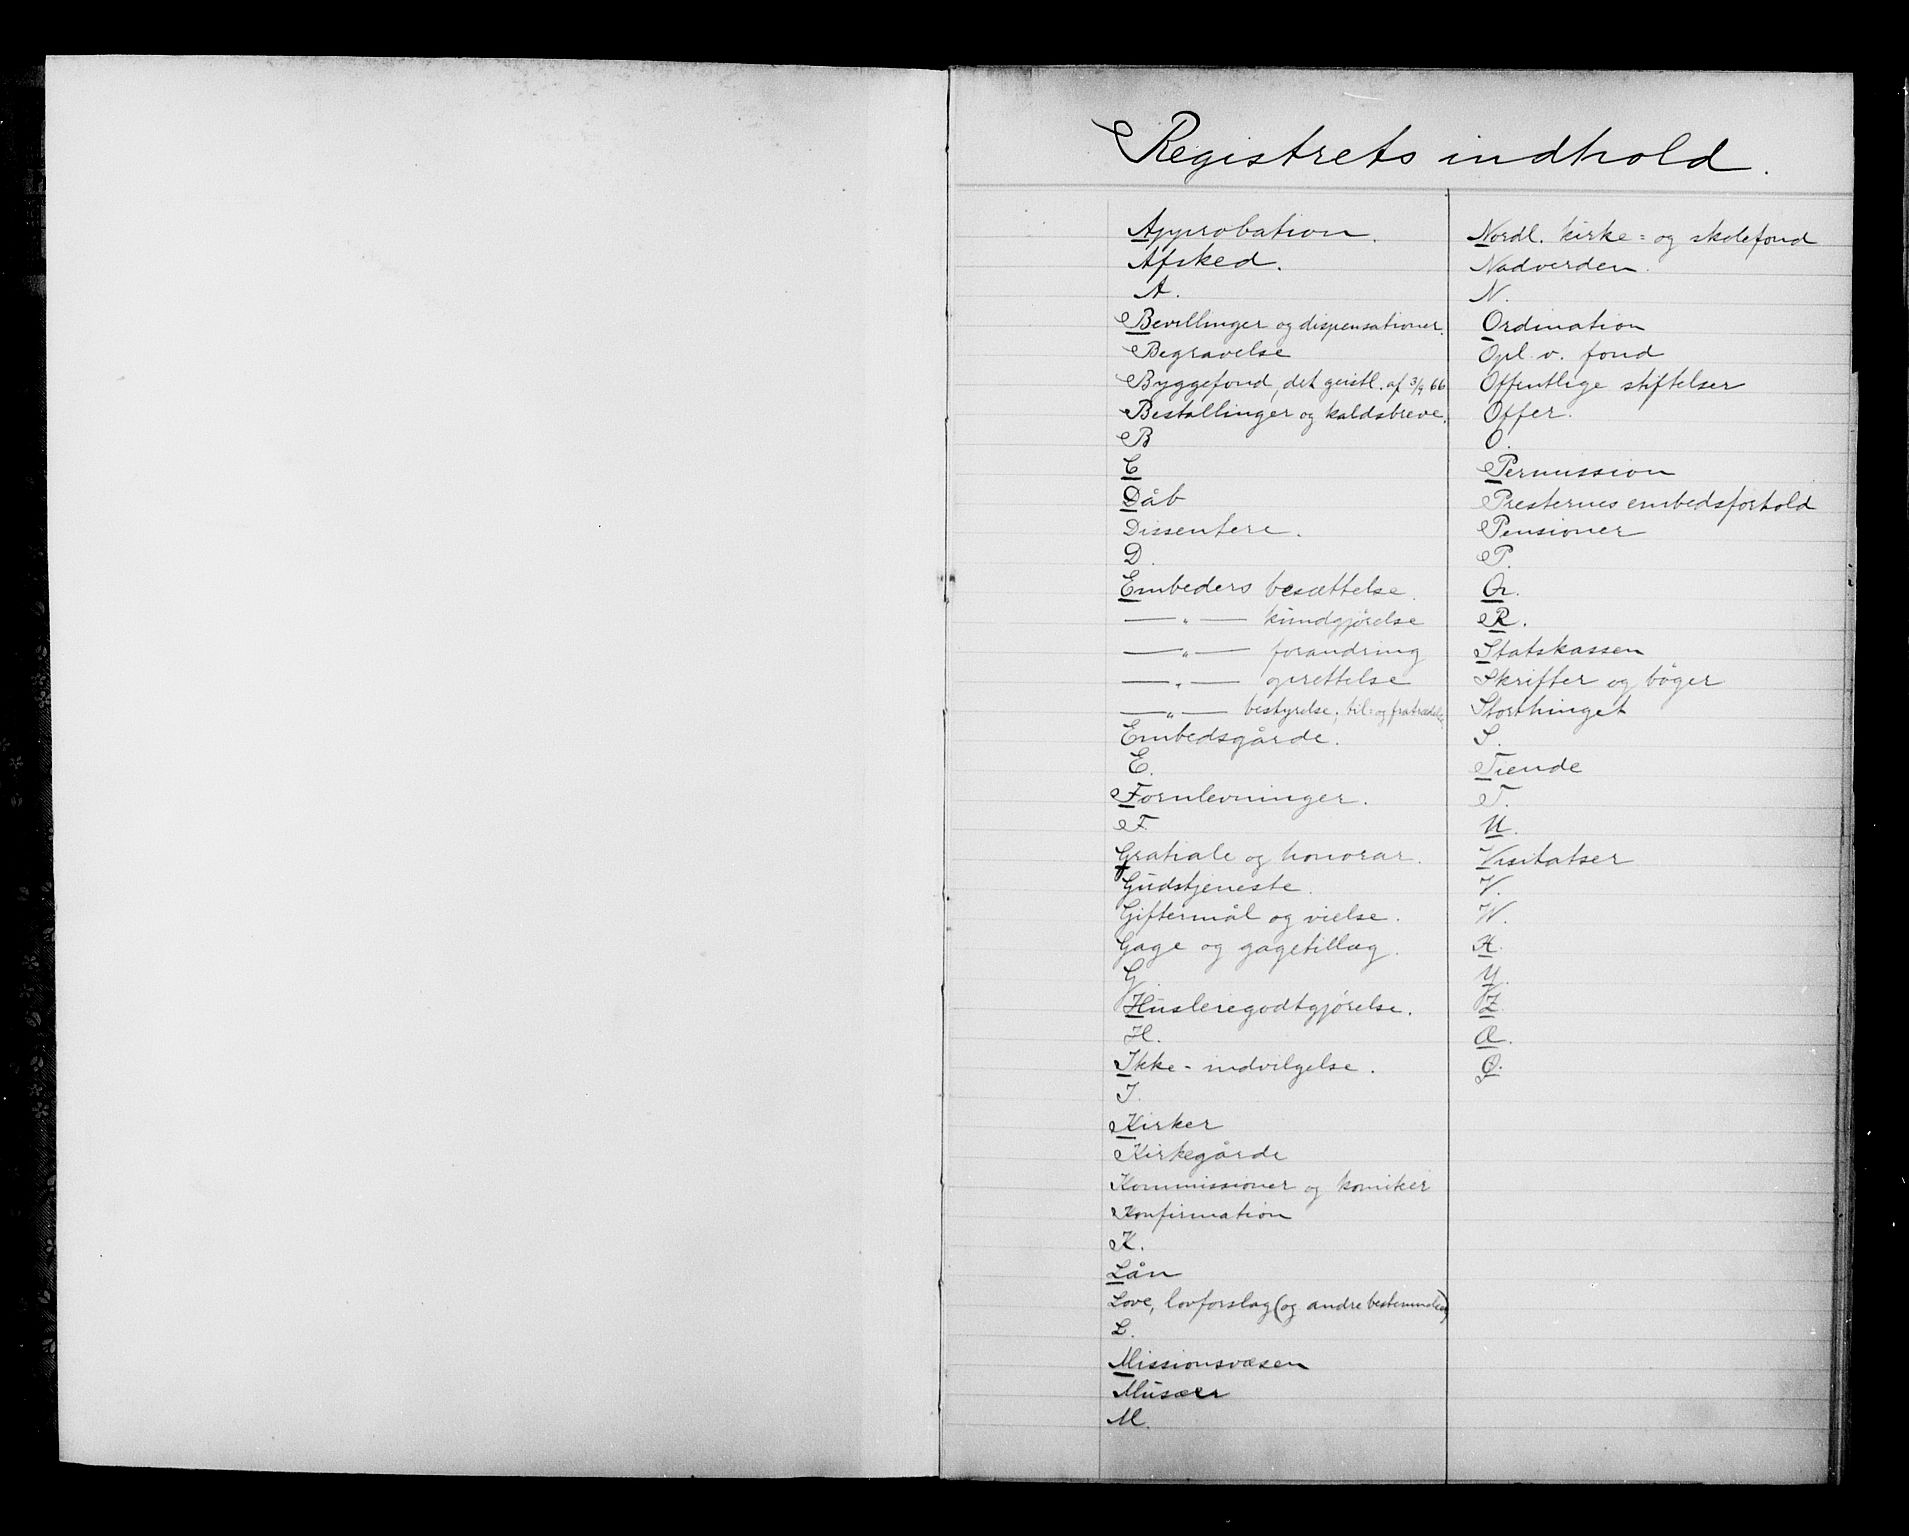 Registrets indhold.
Approbation.
Afsked.
A.
Bevillinger og dispensationer.
Begravelse
Byggefond, det geistl. af 3/9 66
Bestallinger og kaldsbreve.
B
C
Dåb
Dissentere.
D.
Embeders besættelse.
—„— kundgjørelse
—„— forandring
—„— oprettelse
—„— bestyrelse, til- og fratrædelse
Embedsgårde.
E.
Fornlevninger.
F.
Gratiale og honorar.
Gudstjeneste.
Giftermål og vielse.
Gage og gagetillæg.
G.
Husleiegodtgjørelse.
H.
Ikke-indvilgelse.
I.
Kirker
Kirkegårde
Kommissioner og komiteer
Konfirmation
K.
Lån
Love, lovforslag (og andre bestemmelser)
L.
Missionsvæsen
Musæer
M.
Nordl. kirke- og skolefond
Nadverden.
N.
Ordination
Opl. v. fond
Offentlige stiftelser
Offer.
O.
Permission
Presternes embedsforhold
Pensioner
P.
Q.
R.
Statskassen
Skrifter og bøger
Storthinget
S.
Tiende
T.
U.
Visitatser
V.
W.
X.
Y.
Z.
Æ.
Ø.